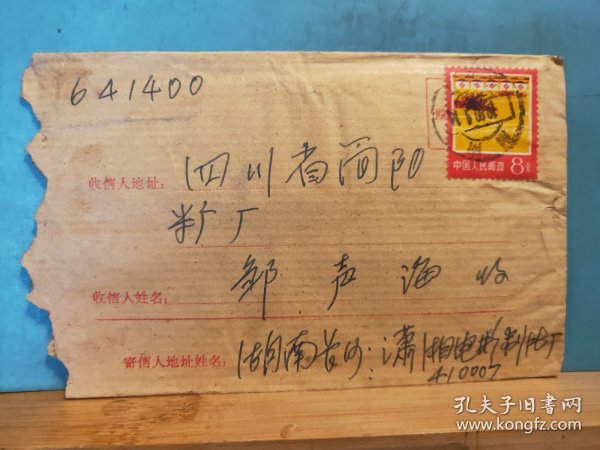 641400
中国人民邮政 8分
收信人地址: 四川省简阳
米厂
收信人姓名: 邹声海 收
寄信人地址姓名: 湖南长沙:潇湘电影制片厂
410007
孔夫子旧书网
www.kongfz.com